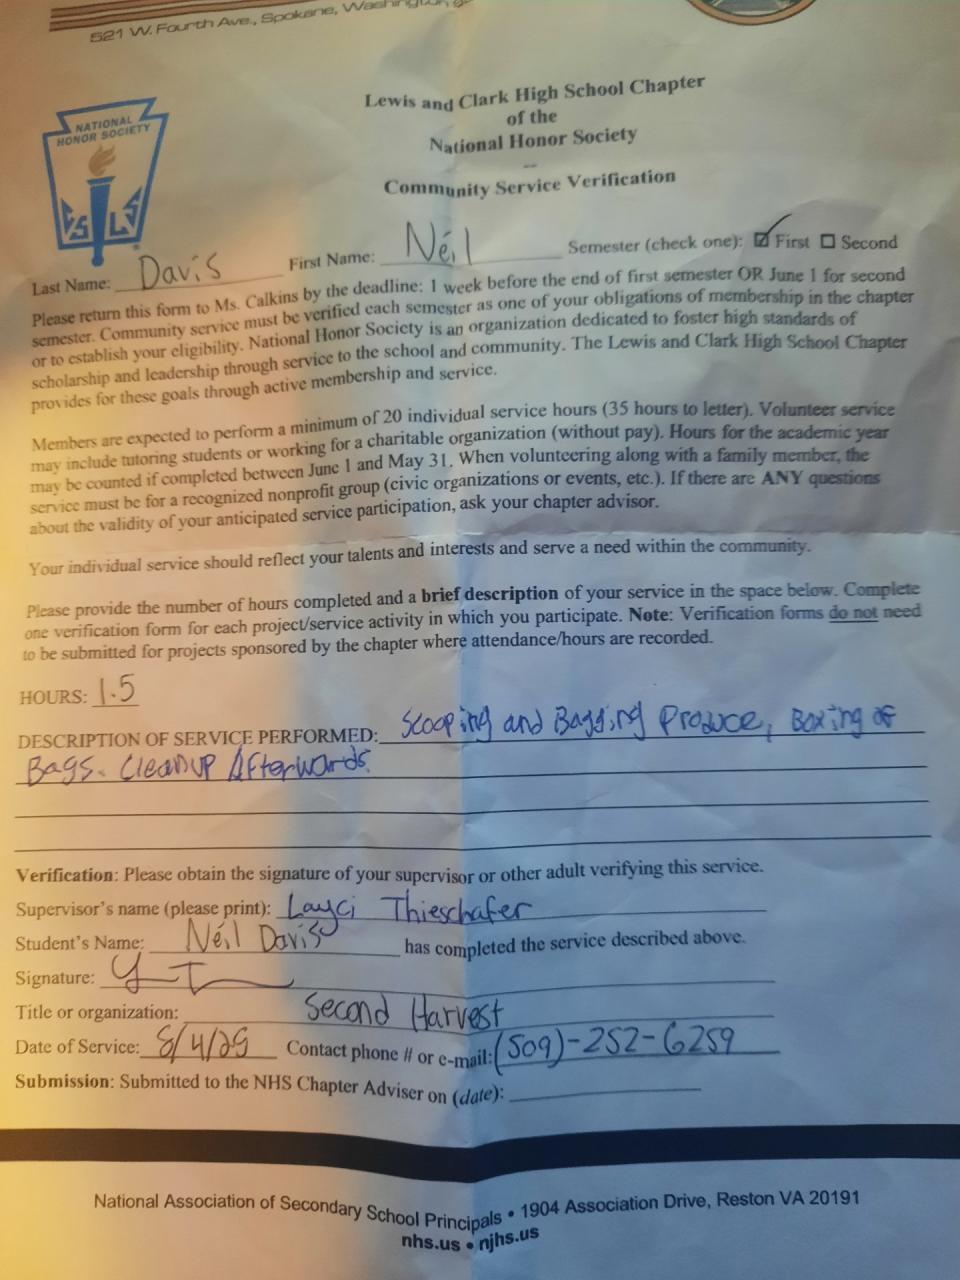 521 W. Fourth Ave., Spokane, Washington
NATIONAL
HONOR SOCIETY
S L S
Lewis and Clark High School Chapter
of the
National Honor Society
--
Community Service Verification
Last Name: Davis First Name: Neil Semester (check one): ☑ First ☐ Second
Please return this form to Ms. Calkins by the deadline: 1 week before the end of first semester OR June 1 for second
semester. Community service must be verified each semester as one of your obligations of membership in the chapter
or to establish your eligibility. National Honor Society is an organization dedicated to foster high standards of
scholarship and leadership through service to the school and community. The Lewis and Clark High School Chapter
provides for these goals through active membership and service.
Members are expected to perform a minimum of 20 individual service hours (35 hours to letter). Volunteer service
may include tutoring students or working for a charitable organization (without pay). Hours for the academic year
may be counted if completed between June 1 and May 31. When volunteering along with a family member, the
service must be for a recognized nonprofit group (civic organizations or events, etc.). If there are ANY questions
about the validity of your anticipated service participation, ask your chapter advisor.
Your individual service should reflect your talents and interests and serve a need within the community.
Please provide the number of hours completed and a brief description of your service in the space below. Complete
one verification form for each project/service activity in which you participate. Note: Verification forms do not need
to be submitted for projects sponsored by the chapter where attendance/hours are recorded.
HOURS: 1.5
DESCRIPTION OF SERVICE PERFORMED: Scooping and Bagging Produce, Boxing of
Bags. Cleanup Afterwards.
Verification: Please obtain the signature of your supervisor or other adult verifying this service.
Supervisor's name (please print): Layci Thieschafer
Student's Name: Neil Davis has completed the service described above.
Signature:
Title or organization: Second Harvest
Date of Service: 8/4/25 Contact phone # or e-mail: (509)-252-6259
Submission: Submitted to the NHS Chapter Adviser on (date):
National Association of Secondary School Principals • 1904 Association Drive, Reston VA 20191
nhs.us • njhs.us